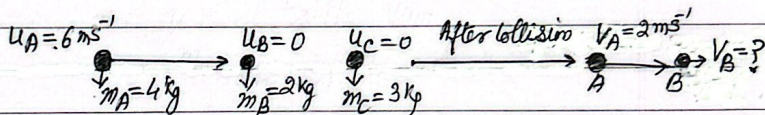 u_A=6ms⁻¹ u_B=0 u_C=0 After Collision V_A=2ms⁻¹
m_A=4kg m_B=2kg m_C=3kg A B V_B=?